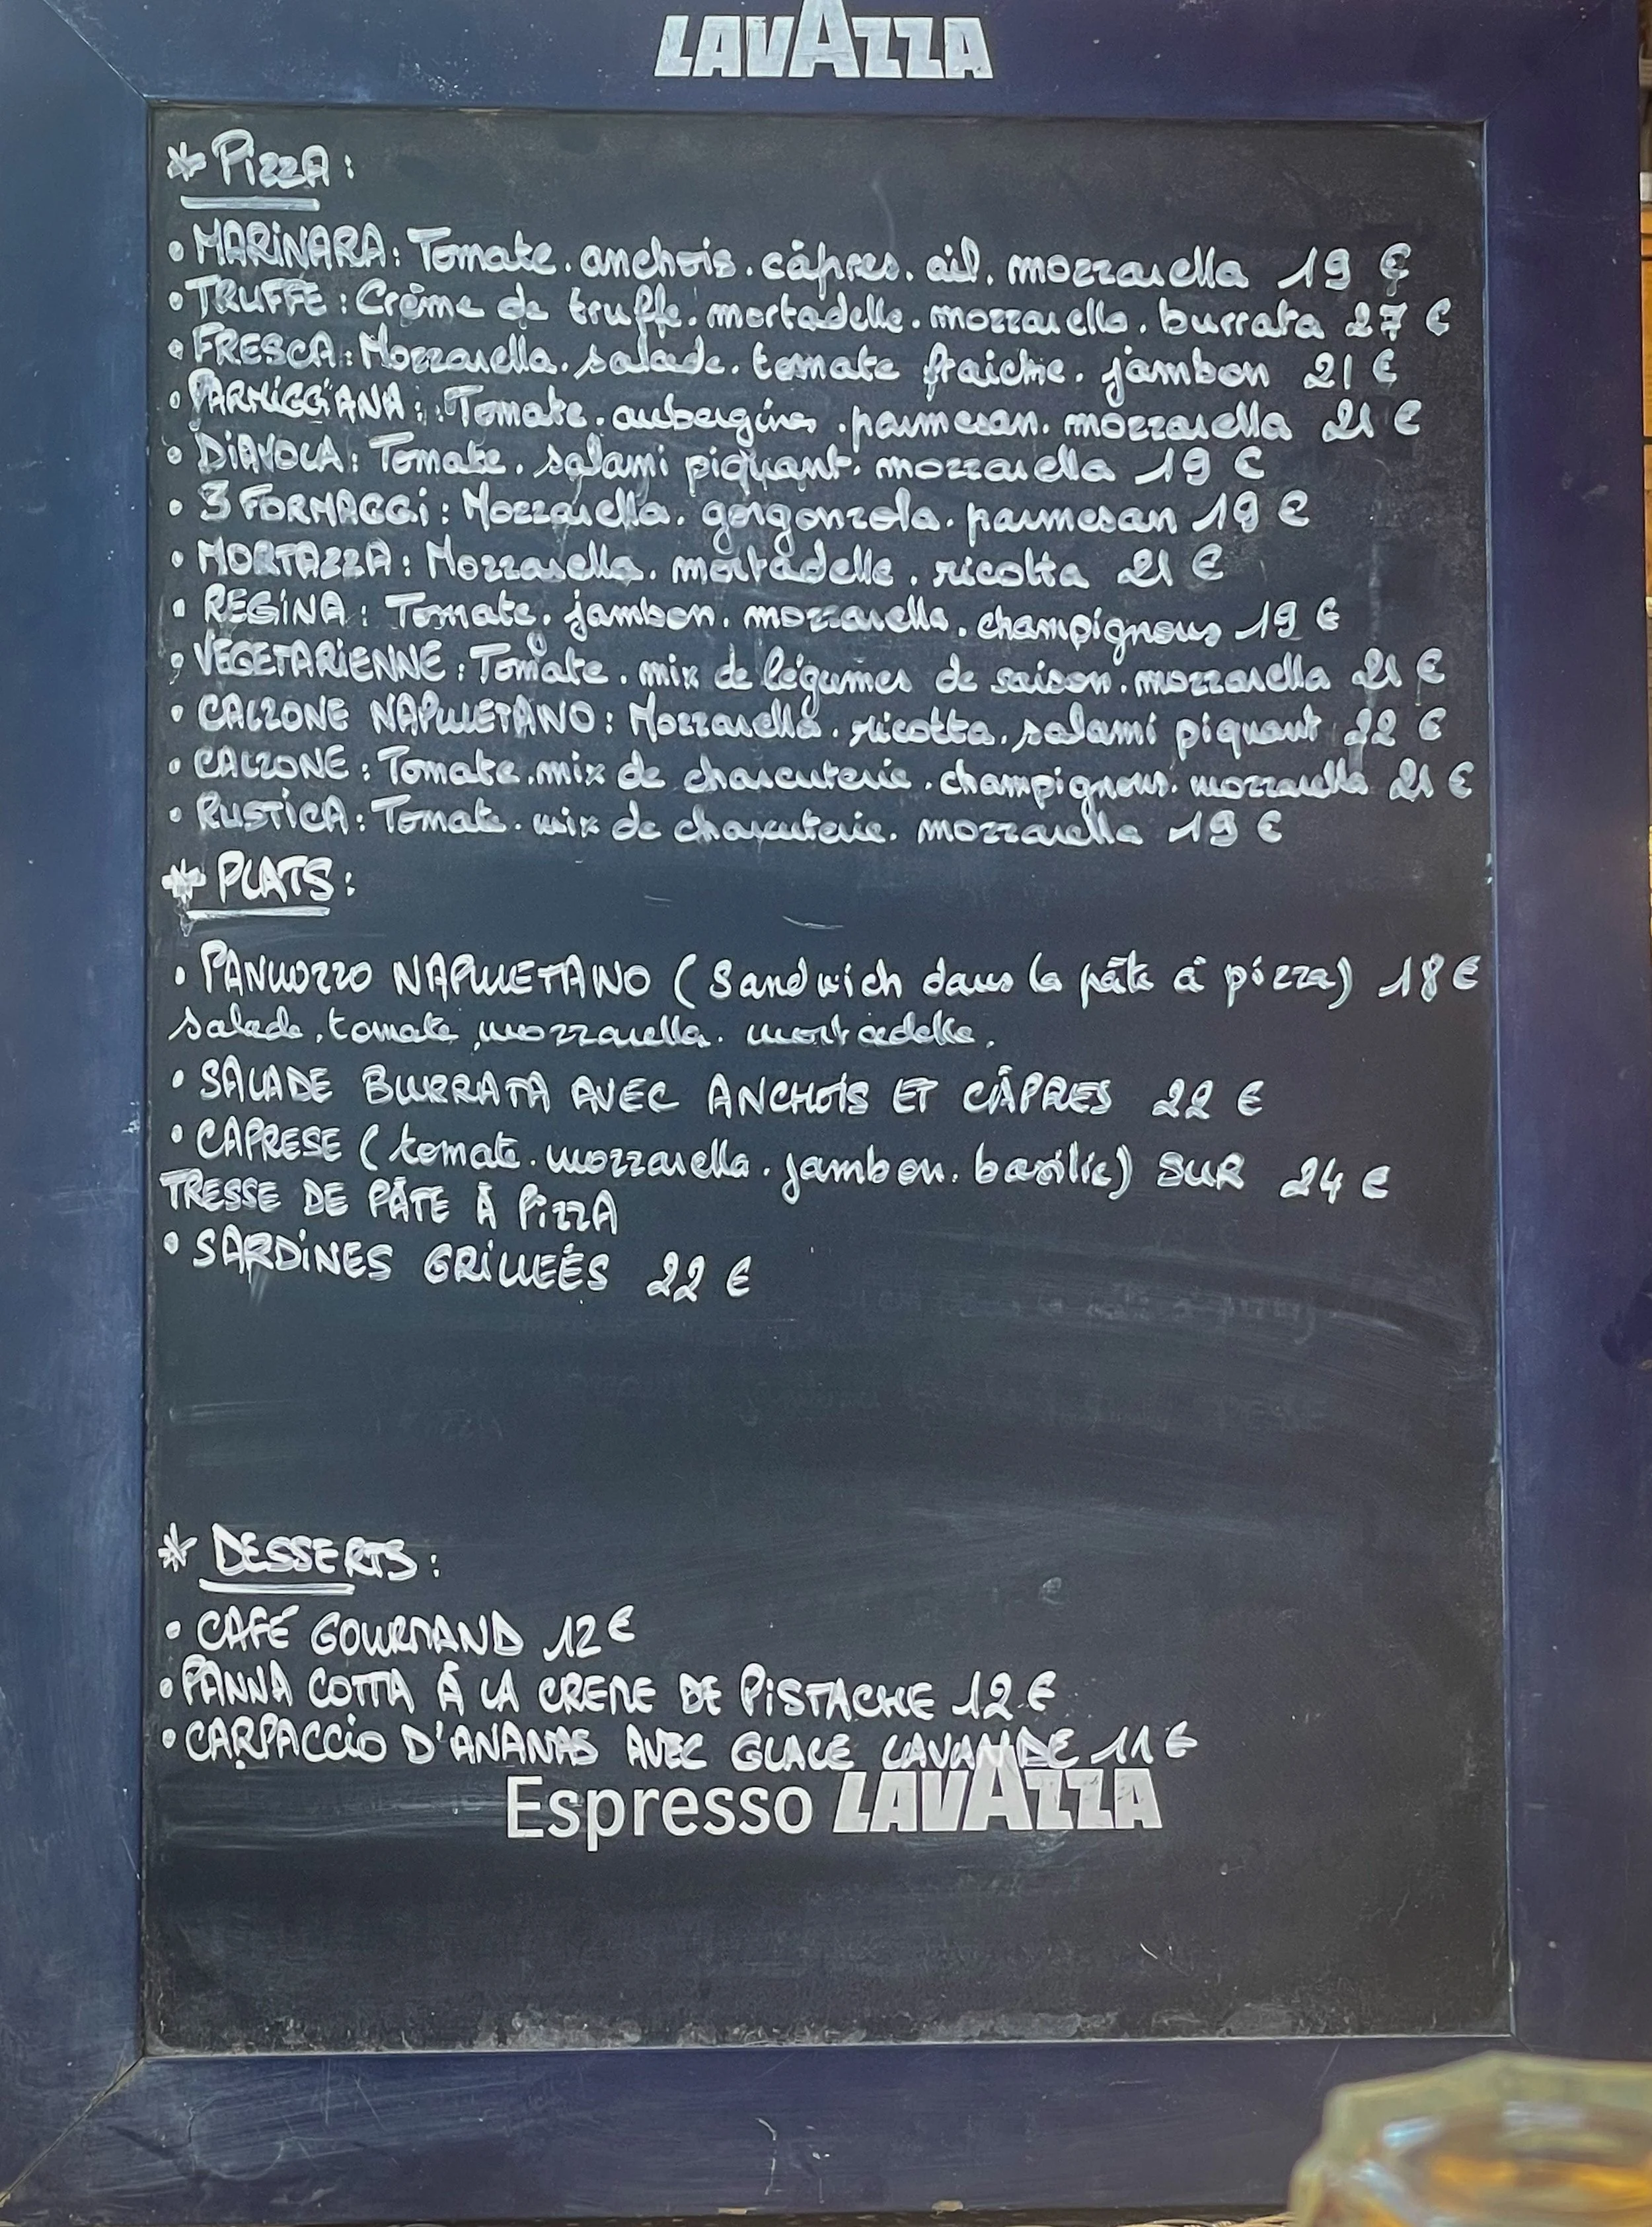 LAVAZZA
* PizzA:
• MARiNARA: Tomate. anchois. câpres. ail. mozzarella 19 €
• TRUFFE: Crème de truffe. mortadelle. mozzarella. burrata 27 €
• FRESCA: Mozzarella. salade. tomate fraiche. jambon 21 €
• PARMiGGiANA: Tomate. aubergines. parmesan. mozzarella 21 €
• DiAVOLA: Tomate. salami piquant. mozzarella 19 €
• 3 FORMAGGi: Mozzarella. gorgonzola. parmesan 19 €
• MORTAZZA: Mozzarella. mortadelle. ricotta 21 €
• REGiNA: Tomate. jambon. mozzarella. champignons 19 €
• VEGETARiENNE: Tomate. mix de légumes de saison. mozzarella 21 €
• CALZONE NAPULETANO: Mozzarella. ricotta. salami piquant 22 €
• CALZONE: Tomate. mix de charcuterie. champignons. mozzarella 21 €
• RUSTiCA: Tomate. mix de charcuterie. mozzarella 19 €
* PLATS:
• PANUOZZO NAPULETANO (Sandwich dans la pâte à pizza) 18 €
salade, tomate, mozzarella. mortadelle.
• SALADE BURRATA AVEC ANCHOiS ET CÂPRES 22 €
• CAPRESE (tomate. mozzarella. jambon. basilic) SUR 24 €
TRESSE DE PÂTE À PizzA
• SARDiNES GRiLLEÉS 22 €
* DESSERTS:
• CAFÉ GOURMAND 12 €
• PANNA COTTA À LA CREME DE PiSTACHE 12 €
• CARPACCiO D'ANANAS AVEC GLACE LAVANDE 11 €
Espresso LAVAZZA